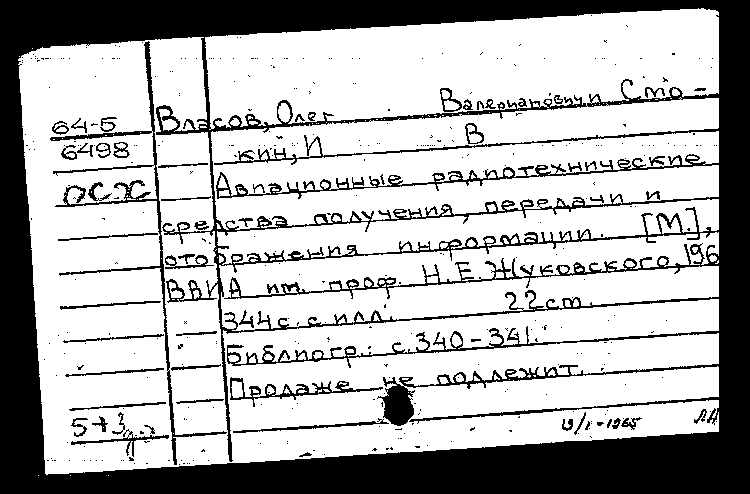 64-5 Власов, Олег Валерианович и Сто-
6498 кин, И В
ОСХ Авиационные радиотехнические
средства получения, передачи и
отображения информации. [М.],
ВВИА им. проф. Н.Е.Жуковского, 196
344 с. с илл. 22 см.
Библиогр.: с. 340-341.
Продаже не подлежит.
5+3
19/I-1965